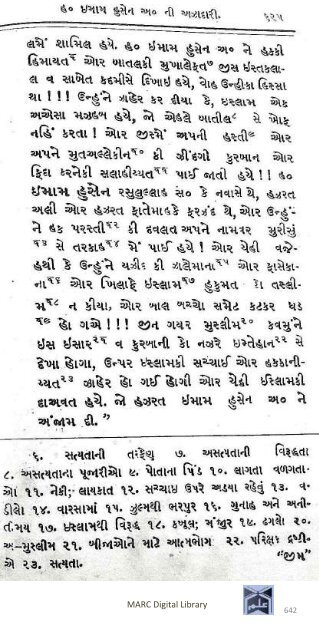 હ૦ ઇમામ હુસેન અ૦ ની અઝાદારી. ૬૨૫
લમેં શામિલ હયે. હ૦ ઇમામ હુસેન અ૦ ને હક્કી
હિમાયત૬ ઓર બાતલકી મુખાલેફત૭ જીસ ઇસ્તકલા-
લ વ સાબેત કદમીસે દિખાઇ હયે, વોહ ઉન્હીકા હિસ્સા
થા!!! ઉન્હુંને ઝાહેર કર દીયા કે, ઇસ્લામ એક
અએસા મઝહબ હયે, જો એહલે બાતીલ૮ સે ખોફ
નહિં કરતા! ઓર જીસ્મે અપની હસ્તી૯ ઓર
અપને મુતઅલ્લેકીન૧૦ કી ઝીંદગી કુરબાન ઓર
ફિદા કરનેકી સલાહીય્યત૧૧ પાઈ જાતી હયે!! હ૦
ઇમામ હુસેન રસુલુલ્લાહ સ૦ કે નવાસે થે, હઝરત
અલી ઓર હઝરત ફાતેમાહકે ફરઝંદ થે, ઓર ઉન્હું-
ને હક પરસ્તી૧૨ કી દવલત અપને નામવર મુરીસું
૧૩ સે તરકાહ૧૪ મેં પાઈ હયે! ઓર યેહી વજે-
હથી કે ઉન્હુંને યઝીદ કી ઝાલેમાના૧૫ ઓર ફાસેકા-
ના૧૬ ઓર ખિલાફે ઇસ્લામ૧૭ હુકુમત કો તસ્લી-
મ૧૮ ન કીયા, ઓર બાલ બચ્ચો સમેટ કટકર ઘડ
૧૯ હો ગએ!!! જીન ગયર મુસ્લીમ૨૦ કવમુંને
ઇસ ઇસાર૨૧ વ કુરબાની કો નઝરે ઇમ્તેહાન૨૨ સે
દેખા હોગા, ઉન્પર ઇસ્લામકી સચ્ચાઈ ઓર હકકાની-
ય્યત૨૩ ઝાહેર હો ગઈ હોગી ઓર યેહી ઇસ્લામકી
દાઅવત હયે. જો હઝરત ઇમામ હુસેન અ૦ ને
અંજામ દી."
૬. સત્યતાની તરફેણ ૭. અસત્યતાની વિરૂધ્ધતા
૮. અસત્યતાના પૂજારીઓ ૯. પોતાના પિંડ ૧૦. લાગતા વળગતા-
ઓ ૧૧. નેકી; લાયકાત ૧૨. સચ્ચાઇ ઉપર અડયા રહેવું ૧૩. વ-
ડીલો ૧૪. વારસામાં ૧૫. જુલ્મથી ભરપુર ૧૬. ગુનાહ અને અની-
તિમય ૧૭. ઇસ્લામથી વિરૂધ્ધ ૧૮. કબૂલ; મંજુર ૧૯. ઢગલો ૨૦.
અ-મુસ્લીમ ૨૧. બીજાઓને માટે આત્મભોગ ૨૨. પરિક્ષક દ્રષ્ટી-
એ ૨૩. સત્યતા. "જીમ"
MARC Digital Library 642